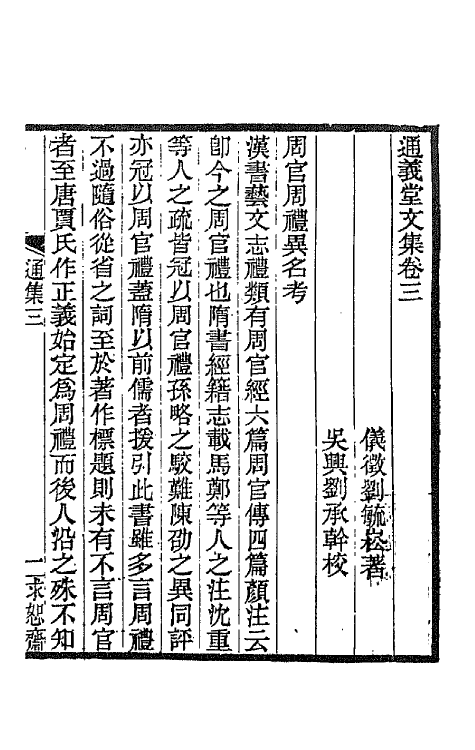 通義堂文集卷三
儀徵劉毓崧著
吳興劉承幹校
周官周禮異名考
漢書藝文志禮類有周官經六篇周官傳四篇顏注云
卽今之周官禮也隋書經籍志載馬鄭等人之注沈重
等人之疏皆冠以周官禮孫略之駁難陳劭之異同評
亦冠以周官禮蓋隋以前儒者援引此書雖多言周禮
不過隨俗從省之詞至於著作標題則未有不言周官
者至唐賈氏作正義始定爲周禮而後人沿之殊不知
通集三
一求恕齋